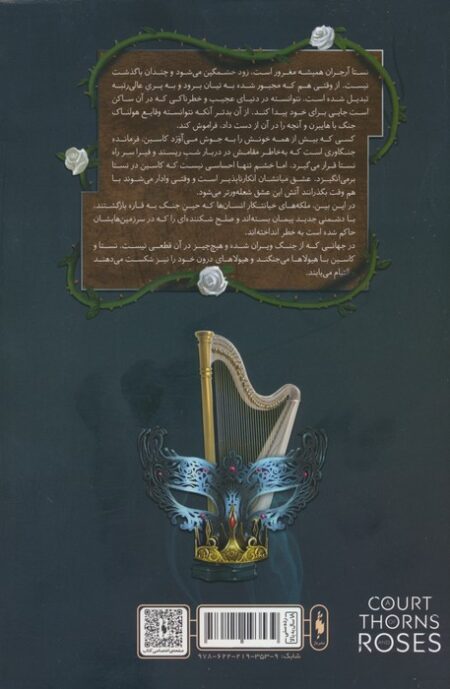 نستا آرچران همیشه مغرور است، زود خشمگین می‌شود و چندان باگذشت
نیست. از وقتی هم که مجبور شده به نیان برود و به پری عالی‌رتبه
تبدیل شده است، نتوانسته در دنیای عجیب و خطرناکی که در آن ساکن
است جایی برای خود پیدا کند. از آن بدتر آنکه نتوانسته وقایع هولناک
جنگ با هایبرن و آنچه را در آن از دست داد، فراموش کند.
کسی که بیش از همه خونش را به جوش می‌آورد کاسین، فرمانده
جنگاوری است که به‌خاطر مقامش در دربار شب ریسند و فیرا سر راه
نستا قرار می‌گیرد. اما خشم تنها احساسی نیست که کاسین در نستا
برمی‌انگیزد. عشق میانشان انکارناپذیر است و وقتی وادار می‌شوند با
هم وقت بگذرانند آتش این عشق شعله‌ورتر می‌شود.
در این بین، ملکه‌های خیانتکار انسان‌ها که حین جنگ به قاره بازگشتند،
با دشمنی جدید پیمان بسته‌اند و صلح شکننده‌ای را که در سرزمین‌هایشان
حاکم شده است به خطر انداخته‌اند.
در جهانی که از جنگ ویران شده و هیچ‌چیز در آن قطعی نیست، نستا و
کاسین با هیولاها می‌جنگند و هیولاهای درون خود را نیز شکست می‌دهند
التیام می‌یابند.
A
COURT
OF
THORNS
AND
ROSES
صفحه‌ی اختصاصی کتاب
شابک: ۹-۳۵۳-۲۱۹-۶۲۲-۹۷۸